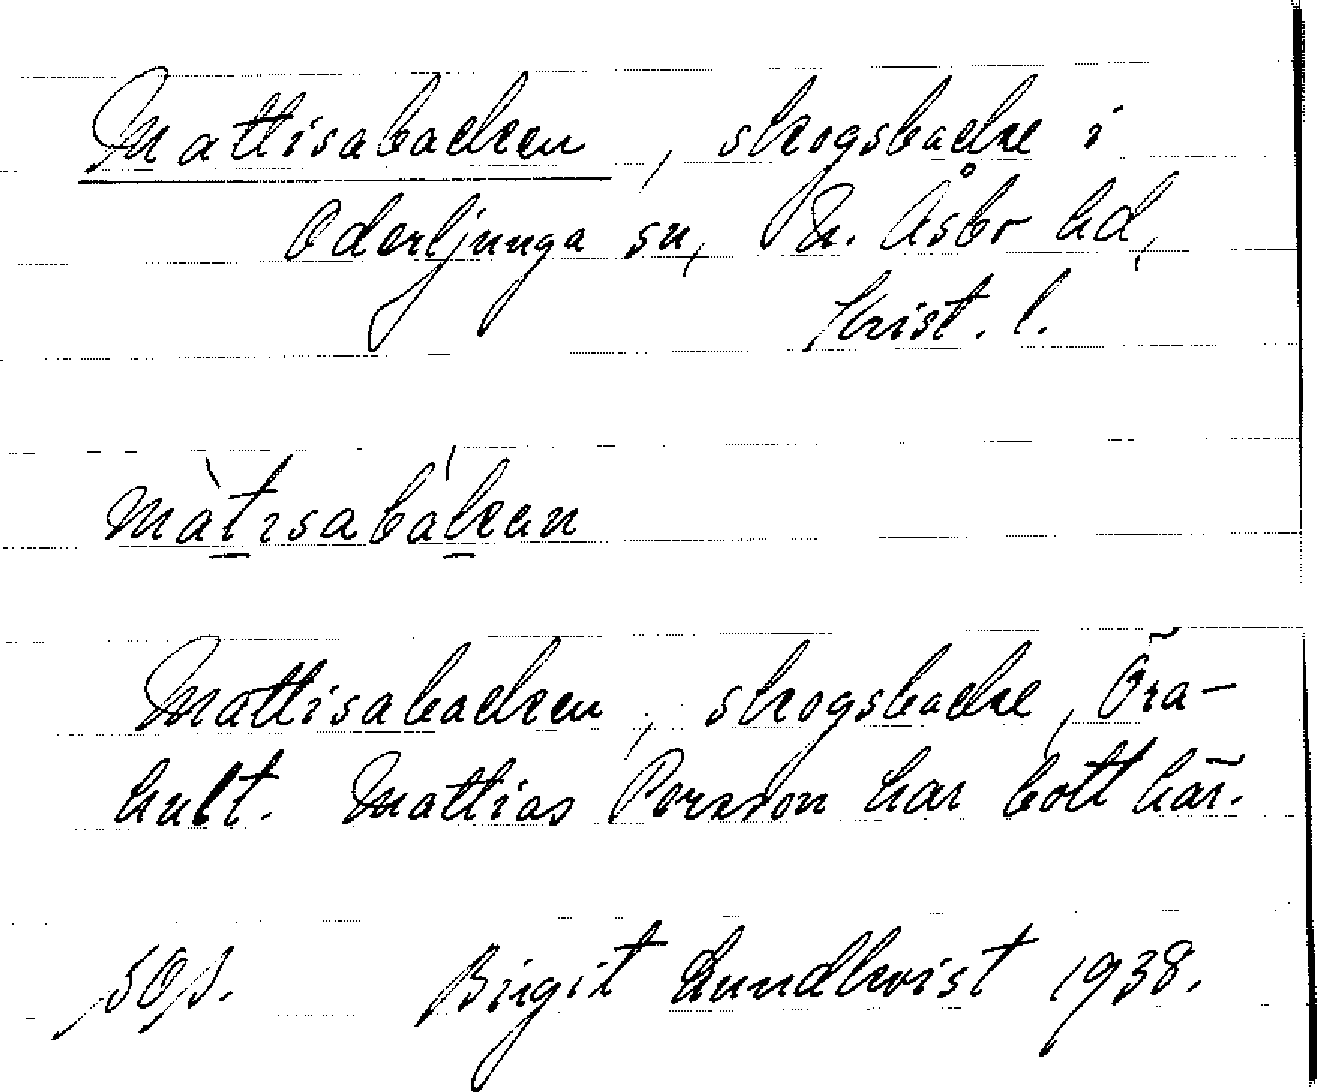 Mattisabacken, skogsbacke i
Oderljunga sn, N. Åsbo hd,
Krist. l.
màt̲ısabák̲an
Mattisabacken, skogsbacke, Öra-
hult. Mattias Persson har bott här.
Birgit Lundkvist 1938.